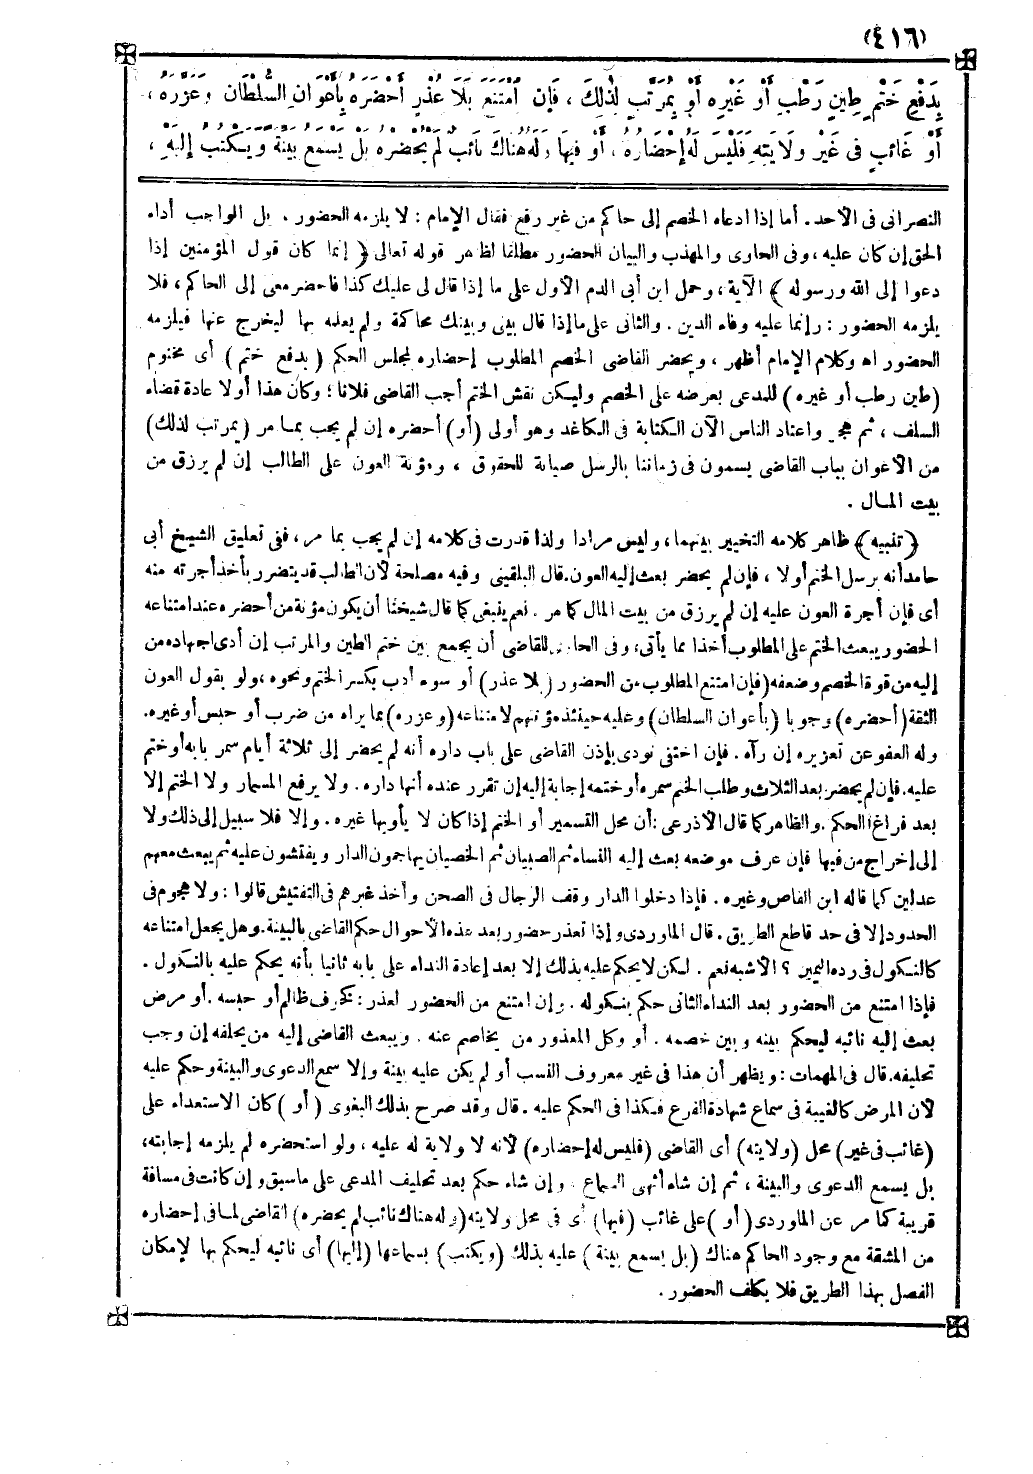 (٤١٦)
بِدَفْعِ خَتْمِ طِينٍ رَطْبٍ أَوْ غَيْرِهِ أَوْ بِمُرَتَّبٍ لِذَلِكَ ، فَإِنِ امْتَنَعَ بِلَا عُذْرٍ أَحْضَرَهُ بِأَعْوَانِ السُّلْطَانِ وَعَزَّرَهُ ،
أَوْ غَائِبٍ فِى غَيْرِ وِلَايَتِهِ فَلَيْسَ لَهُ إِحْضَارُهُ ، أَوْ فِيهَا وَلَهُ هُنَاكَ نَائِبٌ لَمْ يُحْضِرْهُ بَلْ يَسْمَعُ بَيِّنَةً وَيَكْتُبُ إِلَيْهِ ،
النصرانى فى الأحد . أما إذا ادعاه الخصم إلى حاكم من غير رفع فقال الإمام : لا يلزمه الحضور . بل الواجب أداء
الحق إن كان عليه ، وفى الحاوى والمهذب والبيان الحضور مطلقا لظاهر قوله تعالى ﴿ إنما كان قول المؤمنين إذا
دعوا إلى الله ورسوله ﴾ الآية ، وحمل ابن أبى الدم الأول على ما إذا قال لى عليك كذا فاحضر معى إلى الحاكم ، فلا
يلزمه الحضور : وإنما عليه وفاء الدين . والثانى على ما إذا قال بينى وبينك محاكمة ولم يعلمه بها ليخرج عنها فيلزمه
الحضور اه وكلام الإمام أظهر ، ويحضر القاضى الخصم المطلوب إحضاره لمجلس الحكم ( بدفع ختم ) أى مختوم
(طين رطب أو غيره ) للمدعى يعرضه على الخصم وليكن نقش الختم أجب القاضى فلانا ؛ وكان هذا أولا عادة قضاة
السلف ، ثم هجر واعتاد الناس الآن الكتابة فى الكاغد وهو أولى (أو) أحضره إن لم يجب بما مر (بمرتب لذلك)
من الأعوان بباب القاضى يسمون فى زماننا بالرسل صيانة للحقوق ، ومؤنة العون على الطالب إن لم يرزق من
بيت المال .
﴿ تنبيه ﴾ ظاهر كلامه التخيير بينهما ، وليس مرادا ولذا قدرت فى كلامه إن لم يجب بما مر ، ففى تعليق الشيخ أبى
حامد أنه يرسل الختم أولا ، فإن لم يحضر بعث إليه العون . قال البلقينى وفيه مصلحة لأن الطالب قد يتضرر بأخذ أجرته منه
أى فإن أجرة العون عليه إن لم يرزق من بيت المال كما مر . نعم ينبغى كما قال شيخنا أن يكون مؤنة من أحضره عند امتناعه
الحضور يبعث الختم على المطلوب أخذا مما يأتى ، وفى الحاوى للقاضى أن يجمع بين ختم الطين والمرتب إن أدى اجتهاده من
إليه من قوة الخصم وضعفه (فإن امتنع المطلوب من الحضور ( بلا عذر ) أو سوء أدب بكسر الختم ونحوه ، ولو بقول العون
الثقة ( أحضره ) وجوبا ( بأعوان السلطان) وعليه حينئذ مؤنتهم لامتناعه (وعزره) بما يراه من ضرب أو حبس أو غيره .
وله العفو عن تعزيره إن رآه . فإن اختفى نودى بإذن القاضى على باب داره أنه لم يحضر إلى ثلاثة أيام سمر بابه أو ختم
عليه . فإن لم يحضر بعد الثلاث وطلب الخصم سمره أو ختمه إجابة إليه إن تقرر عنده أنها داره . ولا يرفع المسمار ولا الختم إلا
بعد فراغ الحكم . والظاهر كما قال الأذرعى : أن محل التسمير أو الختم إذا كان لا يأويها غيره . وإلا فلا سبيل إلى ذلك ولا
إلى إخراج من فيها فإن عرف موضعه بعث إليه النساء ثم الصبيان ثم الخصيان يهاجمون الدار ويفتشون عليه ثم يبعث معهم
عدلين كما قاله ابن القاص وغيره . فإذا دخلوا الدار وقف الرجال فى الصحن وأخذ غيرهم فى التفتيش قالوا : ولا هجوم فى
الحدود إلا فى حد قاطع الطريق . قال الماوردى وإذا تعذر حضور بعد هذه الأحوال حكم القاضى بالبينة . وهل يجعل امتناعه
كالنكول فى رده اليمين ؟ الأشبه نعم . لكن لا يحكم عليه بذلك إلا بعد إعادة النداء على بابه ثانيا بأنه يحكم عليه بالنكول .
فإذا امتنع من الحضور بعد النداء الثانى حكم بنكوله . وإن امتنع من الحضور لعذر : كخوف ظالم أو حبسه . أو مرض
بعث إليه نائبه ليحكم بينه وبين خصمه . أو وكل المعذور من يخاصم عنه . ويبعث القاضى إليه من يحلفه إن وجب
تحليفه . قال فى المهمات : ويظهر أن هذا فى غير معروف النسب أو لم يكن عليه بينة وإلا سمع الدعوى والبينة وحكم عليه
لأن المرض كالغيبة فى سماع شهادة الفرع فكذا فى الحكم عليه . قال وقد صرح بذلك البغوى ( أو ) كان الاستعداء على
(غائب فى غير) محل (ولايته) أى القاضى (فليس له إحضاره) لأنه لا ولاية له عليه ، ولو استحضره لم يلزمه إجابته ،
بل يسمع الدعوى والبينة ، ثم إن شاء أنهى السماع . وإن شاء حكم بعد تحليف المدعى على ماسبق وإن كانت فى مسافة
قريبة كما مر عن الماوردى ( أو ) على غائب (فيها) أى فى محل ولايته (وله هناك نائب لم يحضره) القاضى لما فى إحضاره
من المشقة مع وجود الحاكم هناك (بل يسمع بينة ) عليه بذلك (ويكتب) بسماعها (إليها) أى نائبه ليحكم بها لإمكان
الفصل بهذا الطريق فلا يكلف الحضور .